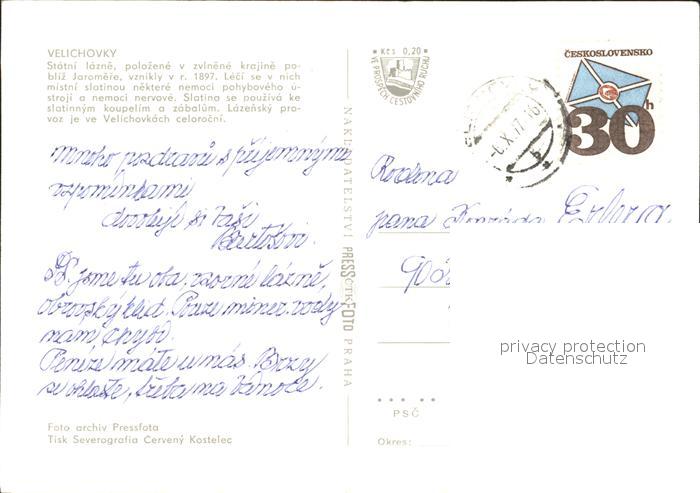 VELICHOVKY
Státní lázně, položené v zvlněné krajině po-
blíž Jaroměře, vznikly v r. 1897. Léčí se v nich
místní slatinou některé nemoci pohybového ú-
strojí a nemoci nervové. Slatina se používá ke
slatinným koupelím a zábalům. Lázeňský pro-
voz je ve Velichovkách celoroční.
Mnoho pozdravů s příjemnými
vzpomínkami
dovolují si Vaši
Bartošovi.
PS. jsme tu oba, vzorné lázně,
obrovský klid. Pouze miner. vody
nám chybí.
Peníze máte u nás. Brzy
se ohlaste, třeba na Vánoce.
Foto archiv Pressfota
Tisk Severografia Červený Kostelec
NAKLADATELSTVÍ PRESSFOTO PRAHA
ČTK
Kčs 0,20
VE PROSPĚCH CESTOVNÍHO RUCHU
ČESKOSLOVENSKO
30h
Rodina
pana
PSČ
Okres:
privacy protection
Datenschutz